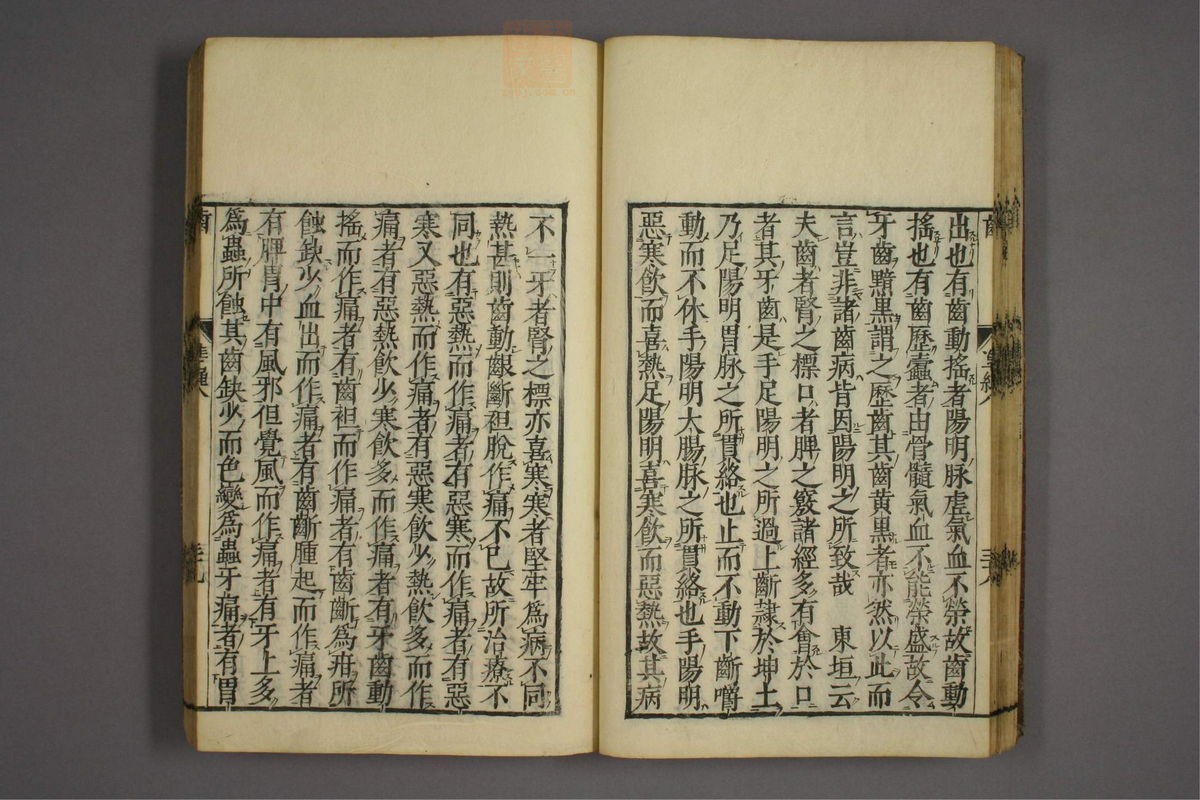 出也有齒動搖者陽明脉虛氣血不榮故齒動
搖也有齒歷蠹者由骨髓氣血不能榮盛故令
牙齒黯黑謂之歷齒其齒黃黑者亦然以此而
言豈非諸齒病皆因陽明之所致哉　東垣云
夫齒者腎之標口者脾之竅諸經多有會於口
者其牙齒是手足陽明之所過上斷隷於坤土
乃足陽明胃脉之所貫絡也止而不動下斷嚼
動而不休手陽明大腸脉之所貫絡也手陽明
惡寒飲而喜熱足陽明喜寒飲而惡熱故其病
不一牙者腎之標亦喜寒寒者堅牢為病不同
熱甚則齒動齦斷袒脫作痛不已故所治療不
同也有惡熱而作痛者有惡寒而作痛者有惡
寒又惡熱而作痛者有惡寒飲少熱飲多而作
痛者有惡熱飲少寒飲多而作痛者有牙齒動
搖而作痛者有齒袒而作痛者有齒斷為疳所
蝕缺少血出而作痛者有齒斷腫起而作痛者
有脾胃中有風邪但覺風而作痛者有牙上多
為蟲所蝕其齒缺少而色變為蟲牙痛者有胃